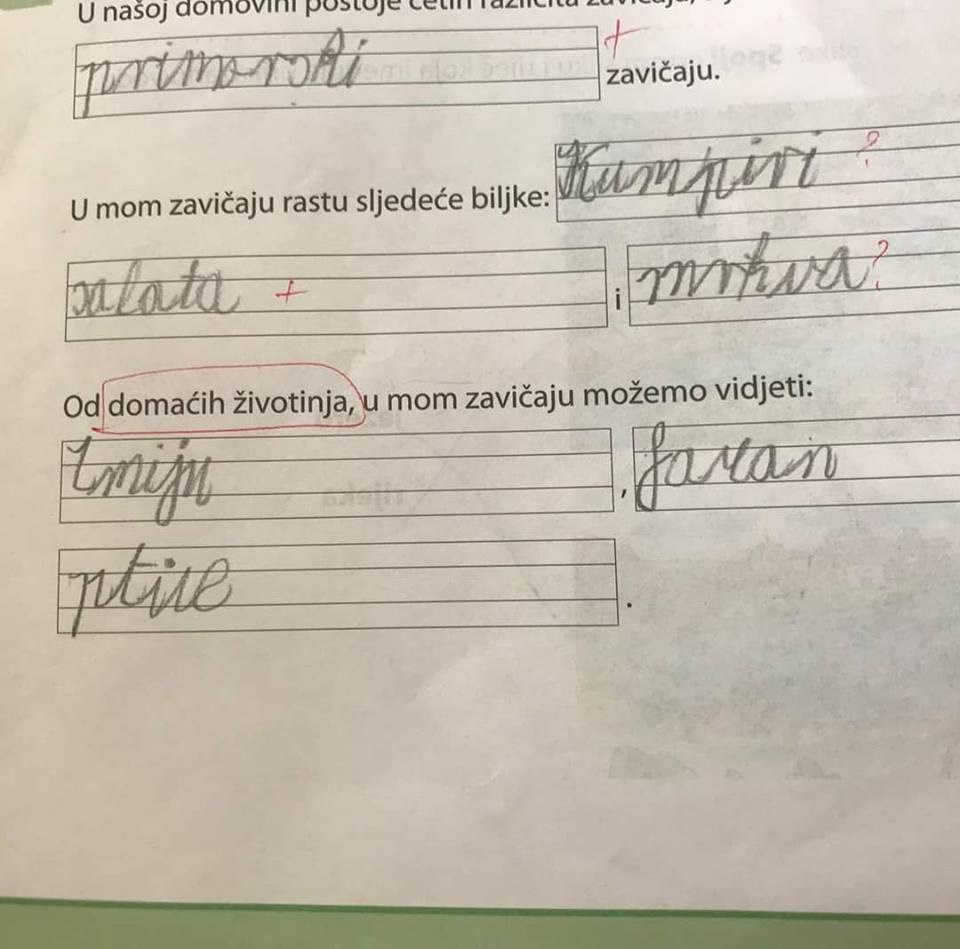 U našoj domovini postoje četiri različita zavičaja,
primorski + zavičaju.
U mom zavičaju rastu sljedeće biljke: Kumpiri ?
salata + i mrkva ?
Od domaćih životinja, u mom zavičaju možemo vidjeti:
zmiju , fazan
ptice .